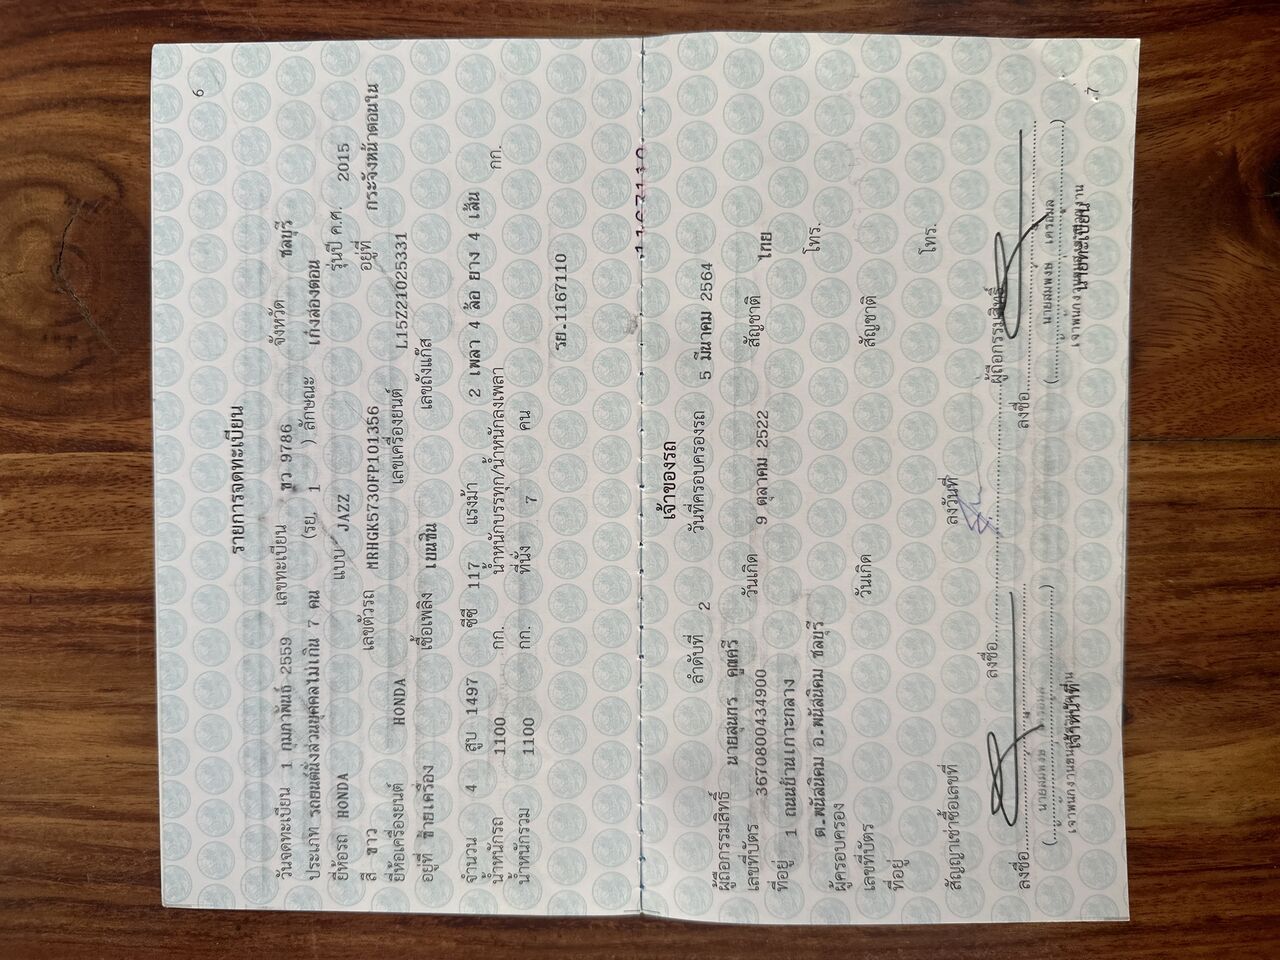 6
รายการจดทะเบียน
วันจดทะเบียน 1 กุมภาพันธ์ 2559 เลขทะเบียน ขว 9786 จังหวัด ชลบุรี
ประเภท รถยนต์นั่งส่วนบุคคลไม่เกิน 7 คน (รย. 1 ) ลักษณะ เก๋งสองตอน
ยี่ห้อรถ HONDA แบบ JAZZ รุ่นปี ค.ศ. 2015
สี ขาว เลขตัวรถ MRHGK5730FP101356 อยู่ที่ กระจังหน้าตอนใน
ยี่ห้อเครื่องยนต์ HONDA เลขเครื่องยนต์ L15Z21025331
อยู่ที่ ซ้ายเครื่อง เชื้อเพลิง เบนซิน เลขถังแก๊ส
จำนวน 4 สูบ 1497 ซีซี 117 แรงม้า 2 เพลา 4 ล้อ ยาง 4 เส้น
น้ำหนักรถ 1100 กก. น้ำหนักบรรทุก/น้ำหนักลงเพลา กก.
น้ำหนักรวม 1100 กก. ที่นั่ง 7 คน
รย.1167110
1167110
เจ้าของรถ
ลำดับที่ 2 วันที่ครอบครองรถ 5 มีนาคม 2564
ผู้ถือกรรมสิทธิ์ นายสุนกร
เลขที่บัตร 3670800434900 วันเกิด 9 ตุลาคม 2522 สัญชาติ ไทย
ที่อยู่ 1 ถนนบ้านเกาะกลาง โทร.
ต.พนัสนิคม อ.พนัสนิคม ชลบุรี
ผู้ครอบครอง
เลขที่บัตร วันเกิด สัญชาติ
ที่อยู่ โทร.
สัญญาเช่าซื้อเลขที่ ลงวันที่
ผู้ถือกรรมสิทธิ์
ลงชื่อ ลงชื่อ ลงชื่อ
( นายสมพงษ์ ) ( นายสมพงษ์ )
เจ้าหน้าที่ นายทะเบียน
7